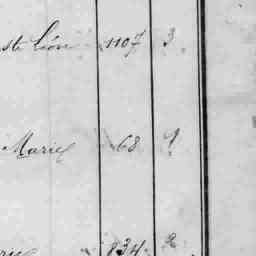 ste Léon 1107 3
Marie 68 ?
834 2